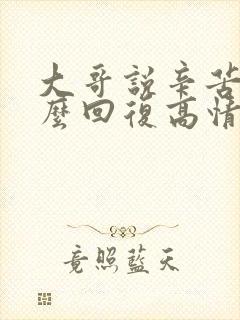 大哥說辛苦
麼回復高情
竟照藍天